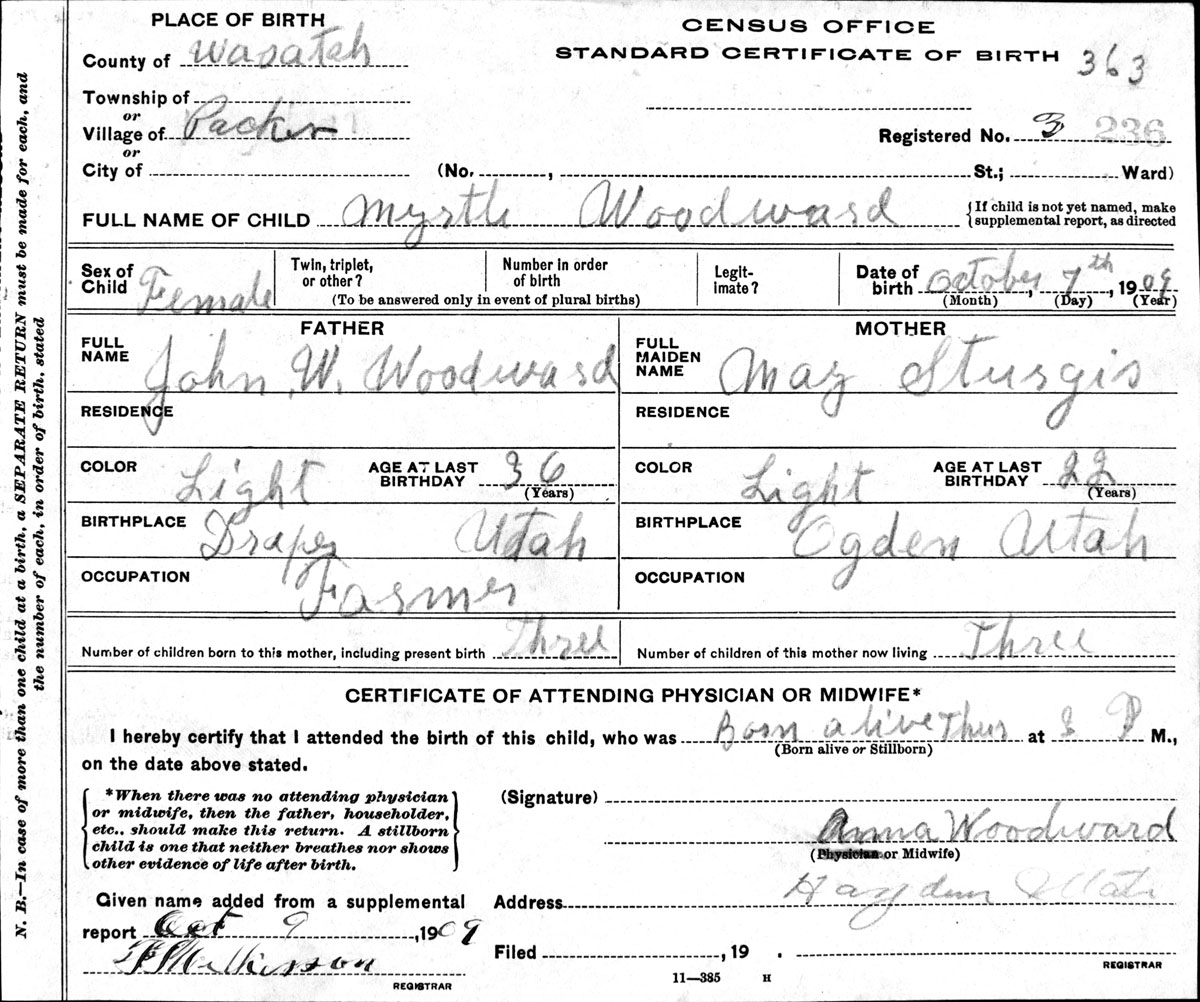 PLACE OF BIRTH
CENSUS OFFICE
County of Wasatch
STANDARD CERTIFICATE OF BIRTH 363
Township of
or
Village of Packer
Registered No. 3 236
or
City of (No. , St.; Ward)
FULL NAME OF CHILD Myrtle Woodward {If child is not yet named, make supplemental report, as directed
Sex of Child Female Twin, triplet, or other? Number in order of birth Legitimate? Date of birth October, 7th, 1909
(To be answered only in event of plural births) (Month) (Day) (Year)
FATHER MOTHER
FULL NAME John W. Woodward FULL MAIDEN NAME May Sturgis
RESIDENCE RESIDENCE
COLOR Light AGE AT LAST BIRTHDAY 36 (Years) COLOR Light AGE AT LAST BIRTHDAY 22 (Years)
BIRTHPLACE Draper Utah BIRTHPLACE Ogden Utah
OCCUPATION Farmer OCCUPATION
Number of children born to this mother, including present birth Three Number of children of this mother now living Three
CERTIFICATE OF ATTENDING PHYSICIAN OR MIDWIFE*
I hereby certify that I attended the birth of this child, who was Born alive Thus at 8 P M.,
(Born alive or Stillborn)
on the date above stated.
{*When there was no attending physician
or midwife, then the father, householder,
etc., should make this return. A stillborn
child is one that neither breathes nor shows
other evidence of life after birth.}
(Signature)
Anna Woodward
(Physician or Midwife)
Given name added from a supplemental
report Oct 9, 1909
Wilkinson
REGISTRAR
Address Hayden Utah
Filed , 19 .
REGISTRAR
11—385 H
N. B.—In case of more than one child at a birth, a SEPARATE RETURN must be made for each, and
the number of each, in order of birth, stated